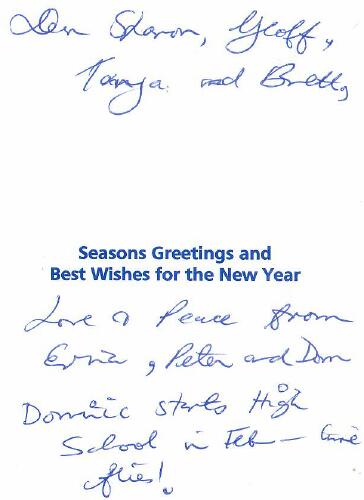 Dear Sharon, Geoff,
Tanya and Brett,
Seasons Greetings and
Best Wishes for the New Year
Love & Peace from
, Peter and Dom
Dominic starts High
School in Feb - time
flies!